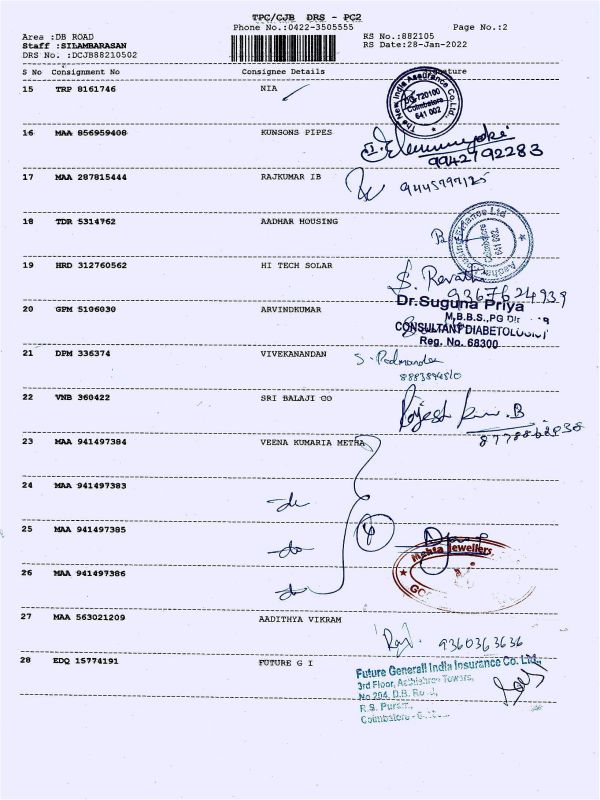 TPC/CJB DRS - PC2
Phone No.:0422-3505555
Page No.:2
Area :DB ROAD
RS No.:882105
Staff :SILAMBARASAN
RS Date:28-Jan-2022
DRS No. :DCJB88210502
S No Consignment No Consignee Details
15 TRP 8161746 NIA
The New India Assurance Co. Ltd.
720100
Coimbatore
641 002
16 MAA 856959408 KUNSONS PIPES
9942192283
17 MAA 287815444 RAJKUMAR IB
18 TDR 5314762 AADHAR HOUSING
Coimbatore
641 002
19 HRD 312760562 HI TECH SOLAR
S. Revathi
9367624939
Dr.Suguna Priya
M.B.B.S.,PG
20 GPM 5106030 ARVINDKUMAR
CONSULTANT DIABETOLOGIST
Reg. No. 68300
21 DPM 336374 VIVEKANANDAN
22 VNB 360422 SRI BALAJI CO
Rajesh Kumar.B
23 MAA 941497384 VEENA KUMARIA METHA
24 MAA 941497383
-do-
25 MAA 941497385
-do-
Mehta Jewellers
26 MAA 941497386
-do-
27 MAA 563021209 AADITHYA VIKRAM
Raj. 9360363636
28 EDQ 15774191 FUTURE G I
Future Generali India Insurance Co. Ltd.,
3rd Floor, Towers,
No 294, D.B.
R.S. Puram,
Coimbatore -